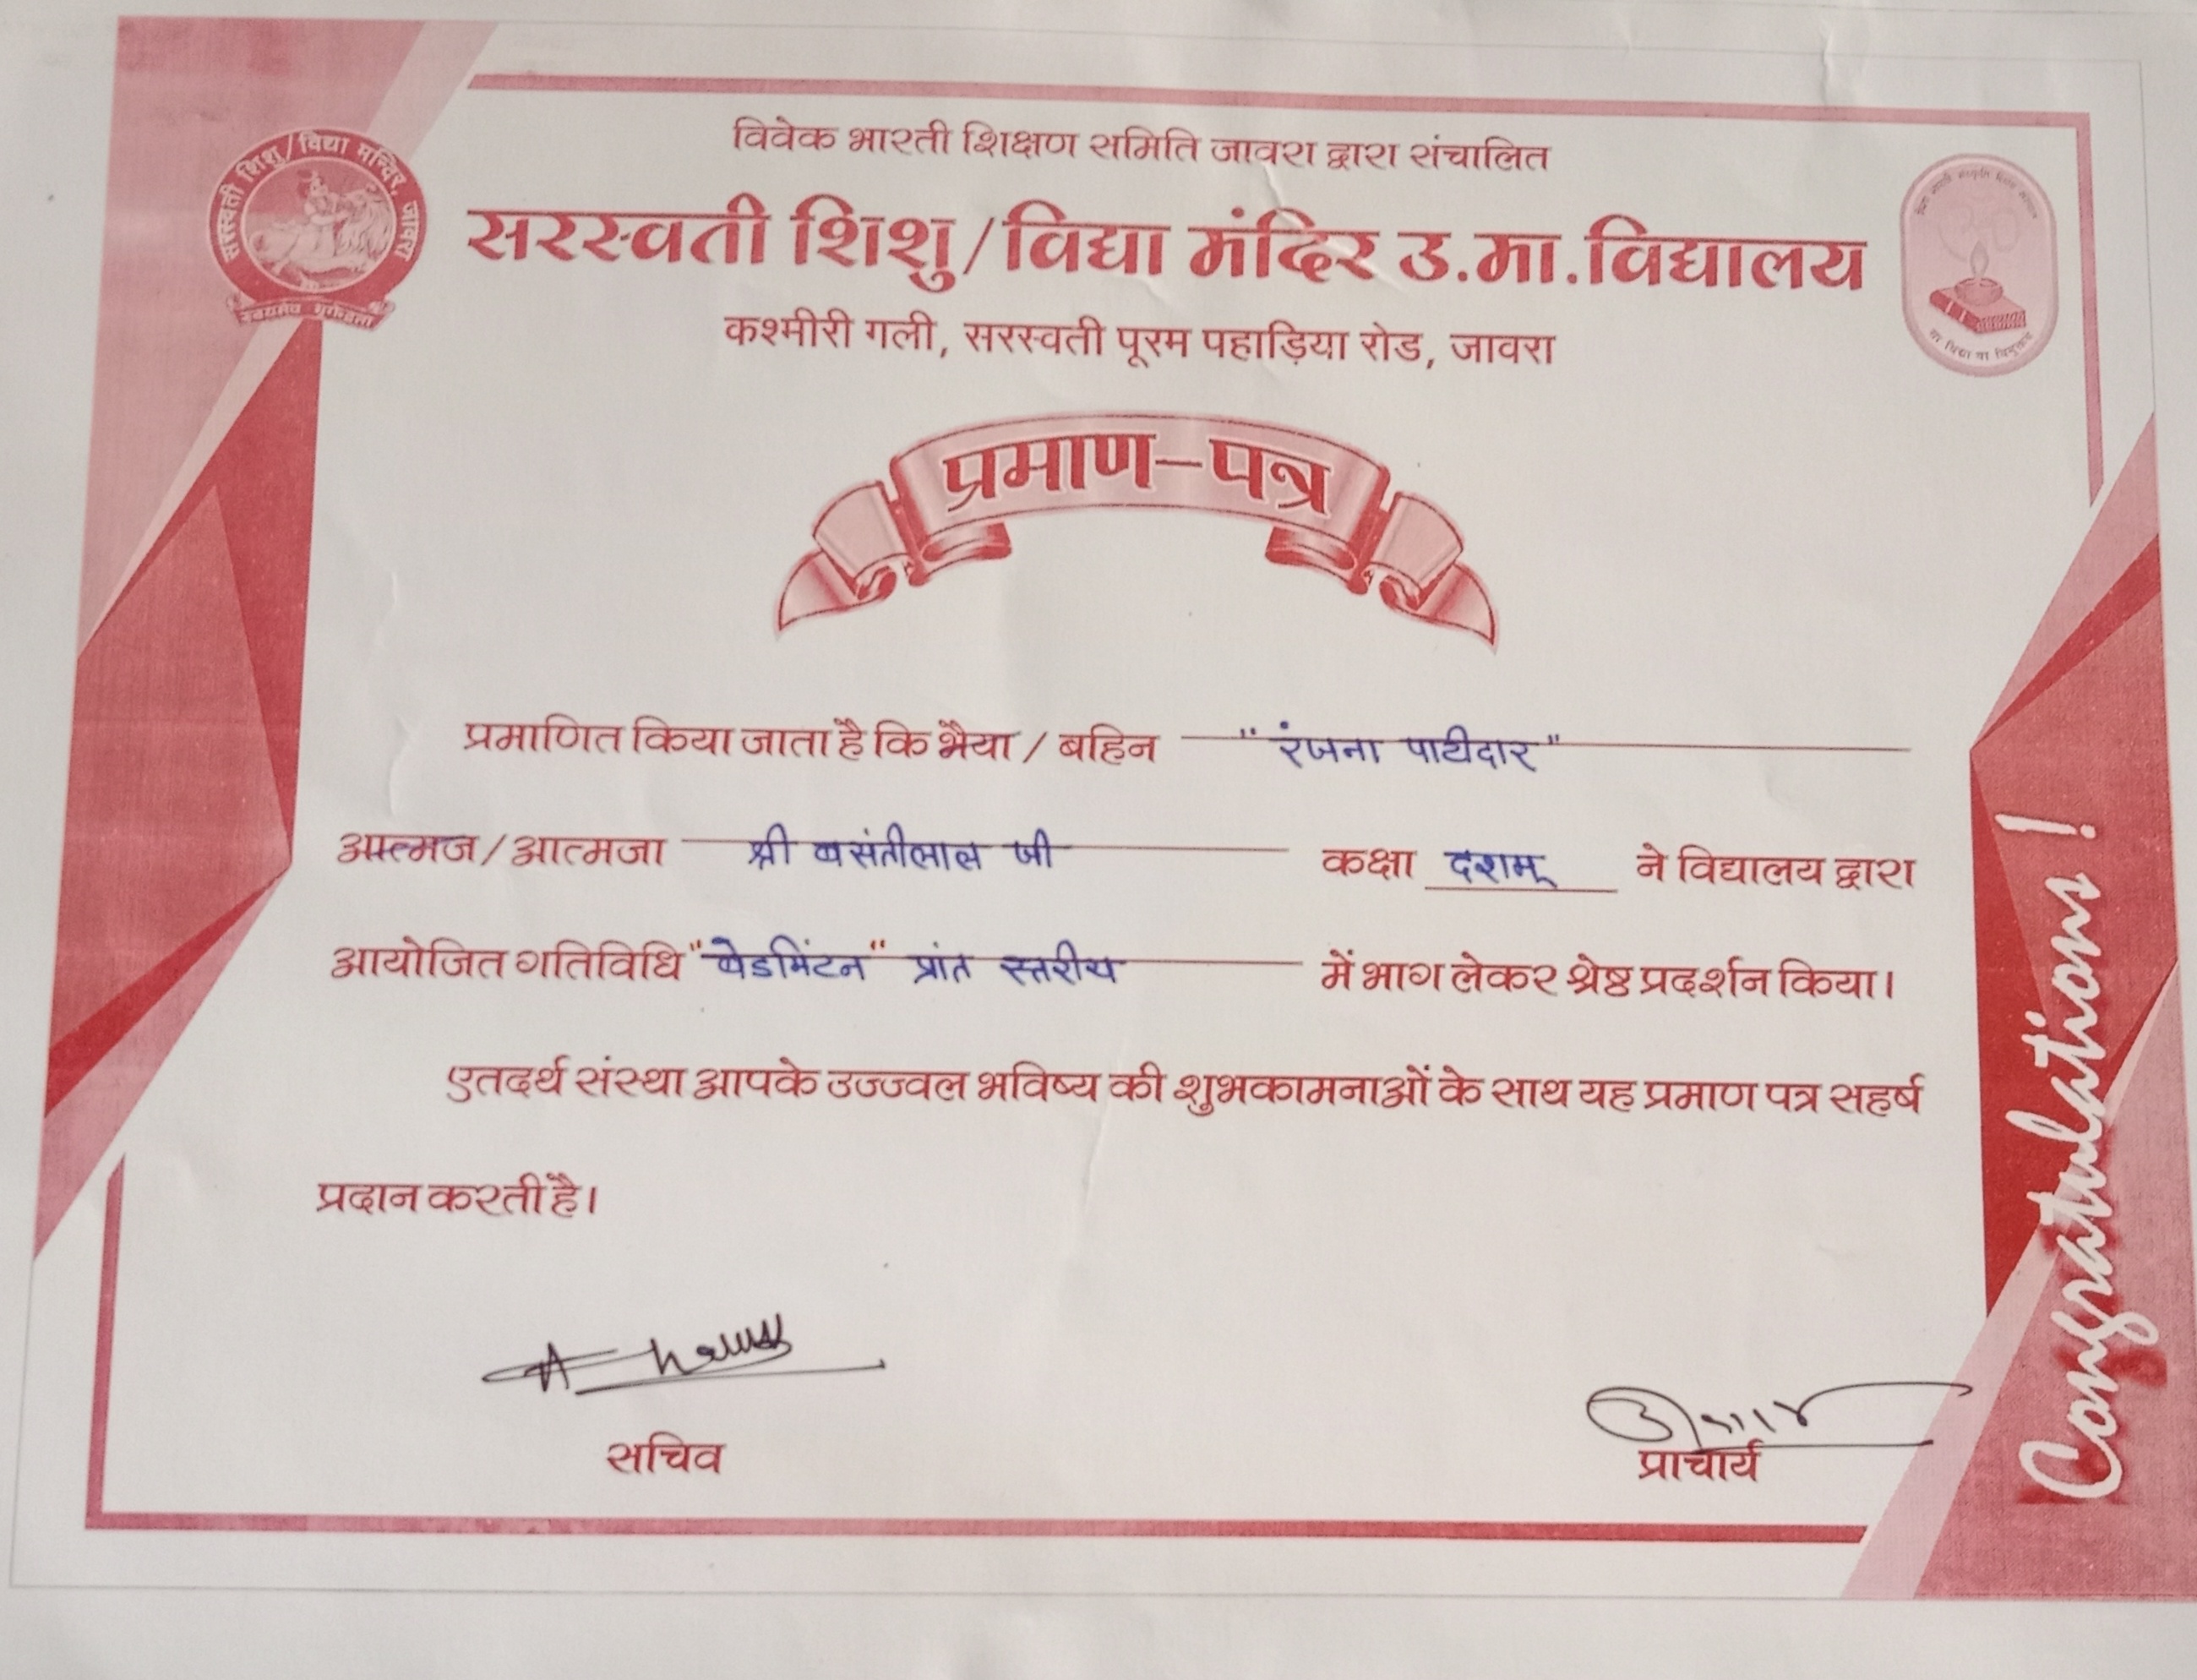 विवेक भारती शिक्षण समिति जावरा द्वारा संचालित
सरस्वती शिशु/विद्या मन्दिर, जावरा
सरस्वती शिशु/विद्या मंदिर उ.मा.विद्यालय
कश्मीरी गली, सरस्वती पूरम पहाड़िया रोड, जावरा
प्रमाण-पत्र
प्रमाणित किया जाता है कि भैया / बहिन "रंजना पाटीदार"
आत्मज/आत्मजा श्री बसंतीलाल जी कक्षा दशम् ने विद्यालय द्वारा
आयोजित गतिविधि "बेडमिंटन" प्रांत स्तरीय में भाग लेकर श्रेष्ठ प्रदर्शन किया।
एतदर्थ संस्था आपके उज्ज्वल भविष्य की शुभकामनाओं के साथ यह प्रमाण पत्र सहर्ष
प्रदान करती है।
सचिव
प्राचार्य
Congratulations !